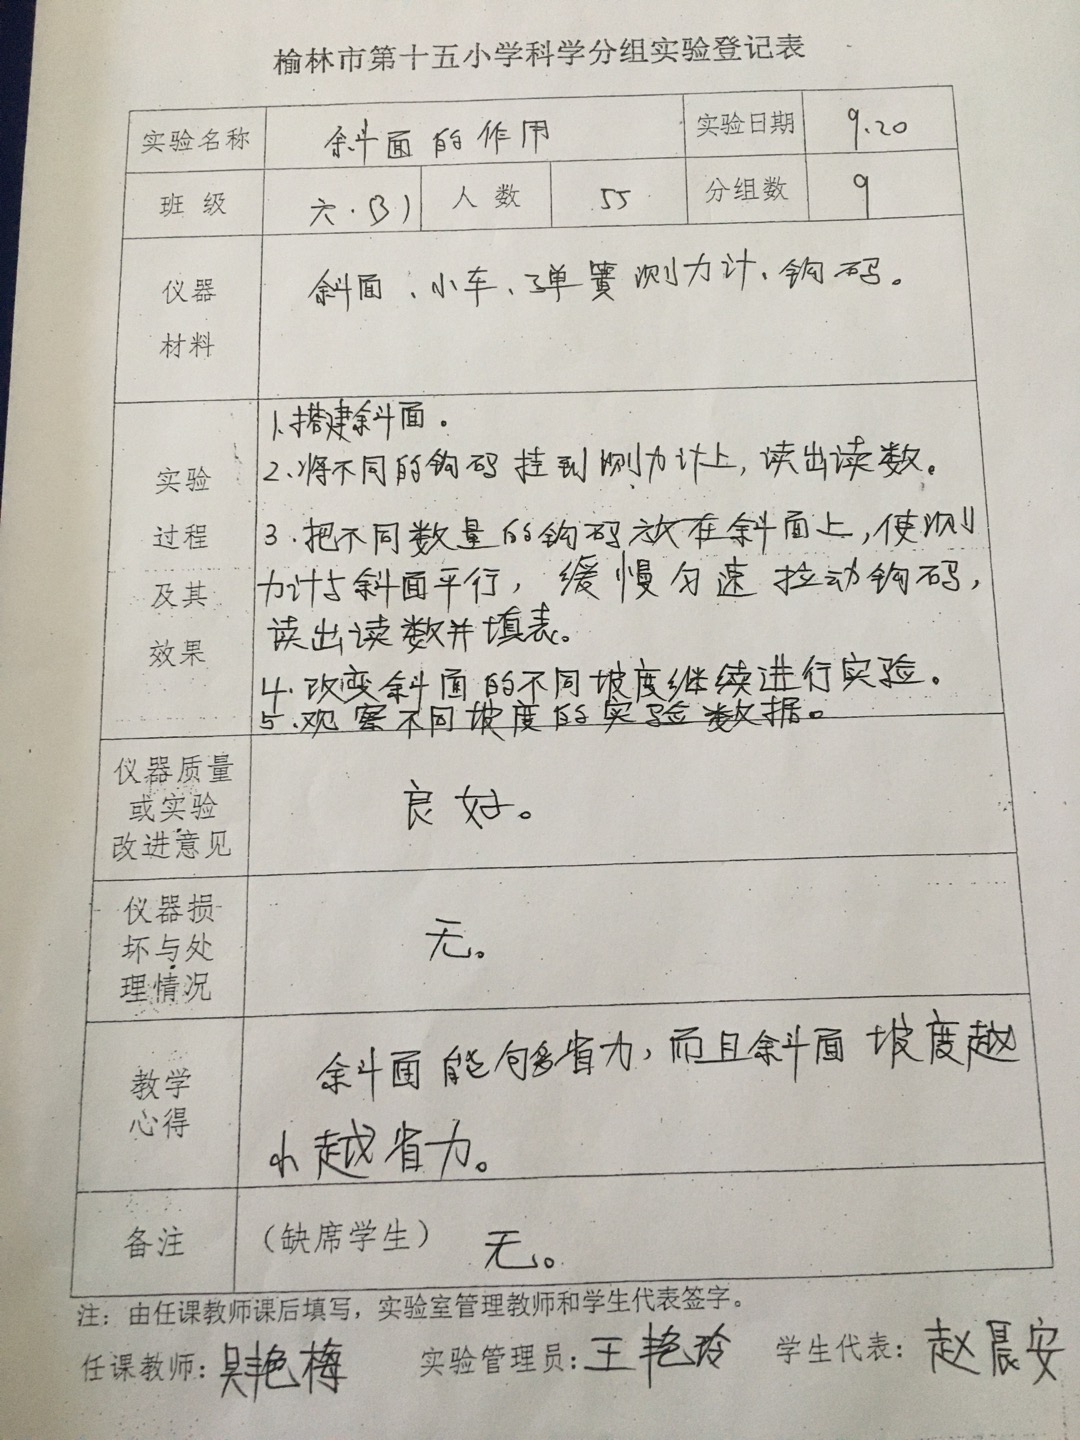 榆林市第十五小学科学分组实验登记表
实验名称 斜面的作用 实验日期 9.20
班级 六.(3) 人数 55 分组数 9
仪器 斜面、小车、弹簧测力计、钩码。
材料
1.搭建斜面。
实验 2.将不同的钩码挂到测力计上,读出读数。
过程 3.把不同数量的钩码放在斜面上,使测
及其 力计与斜面平行,缓慢匀速拉动钩码,
效果 读出读数并填表。
4.改变斜面的不同坡度继续进行实验。
5.观察不同坡度的实验数据。
仪器质量
或实验 良好。
改进意见
仪器损
坏与处 无。
理情况
教学 斜面能够省力,而且斜面坡度越
心得 小越省力。
备注 (缺席学生) 无。
注:由任课教师课后填写,实验室管理教师和学生代表签字。
任课教师:吴艳梅 实验管理员:王艳玲 学生代表:赵晨安